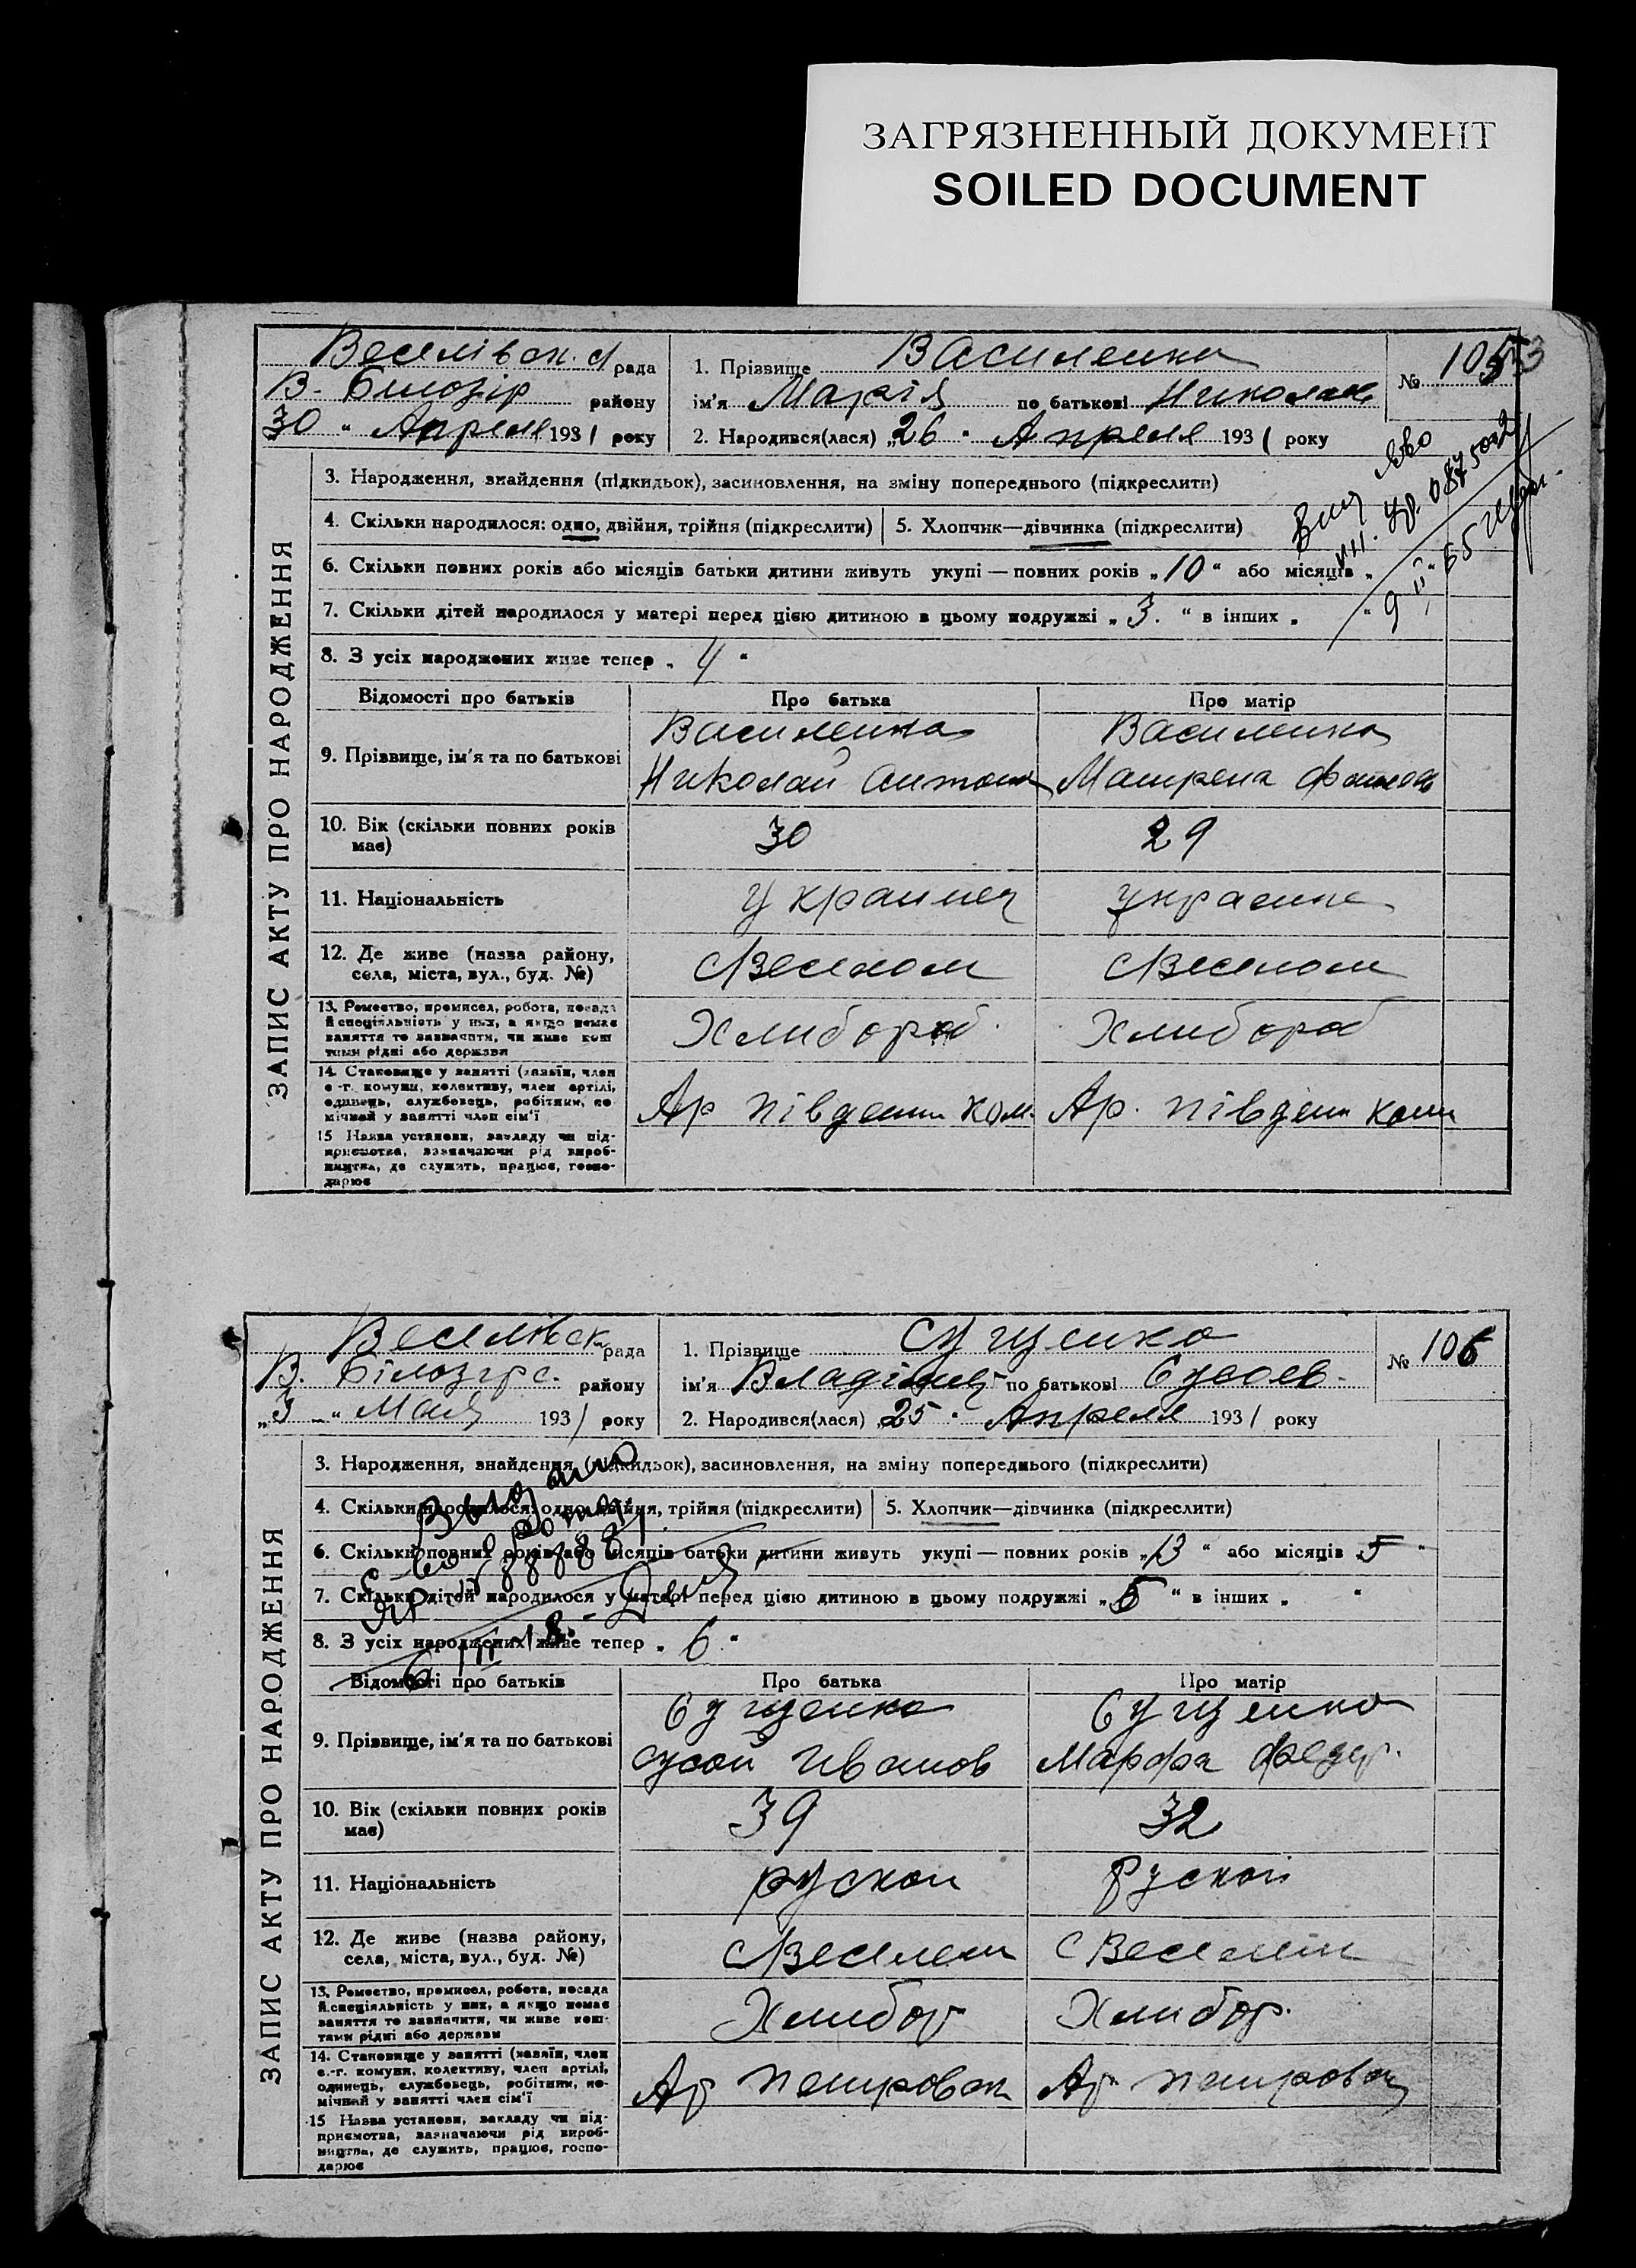 ЗАГРЯЗНЕННЫЙ ДОКУМЕНТ
SOILED DOCUMENT
ЗАПИС АКТУ ПРО НАРОДЖЕННЯ
Веселівск. с/рада
В-Билозір району
30 " Апреля 1931 року
1. Прізвище Василенко
ім'я Марія по батькові Николаев
2. Народився(лася) „26 " Апреля 1931 року
№ 105
3. Народження, знайдення (підкидьок), засиновлення, на зміну попереднього (підкреслити)
4. Скільки народилося: одно, двійня, трійня (підкреслити) 5. Хлопчик—дівчинка (підкреслити)
6. Скільки повних років або місяців батьки дитини живуть укупі — повних років „10" або місяців „
7. Скільки дітей народилося у матері перед цією дитиною в цьому подружжі „3." в інших „ "
8. З усіх народжених живе тепер „4"
Відомості про батьків Про батька Про матір
9. Прізвище, ім'я та по батькові
Василенко Василенко
Николай Антон Матрена
10. Вік (скільки повних років має) 30 29
11. Національність украинец украинк
12. Де живе (назва району, села, міста, вул., буд. №) с Веселом с Веселом
13. Ремество, промисел, робота, посада
й спеціяльність у них, а якщо немає
заняття то зазначити, чи живе кош
тами рідні або держави
Хлибороб Хлибороб
14. Становище у занятті (хазяїн, член
с.-г. комуни, колективу, член артілі,
одинець, службовець, робітник, по-
мічний у занятті член сім'ї
Ар південн ком. Ар. південн ком
15 Назва установи, закладу чи під-
приємства, зазначаючи рід вироб-
ництва, де служить, працює, госпо-
дарює
ЗАПИС АКТУ ПРО НАРОДЖЕННЯ
Веселівск рада
В. Білозірс. району
„3 " Мая 1931 року
1. Прізвище Сущенко
ім'я Владімир по батькові Сусоев.
2. Народився(лася) „25 " Апреля 1931 року
№ 106
3. Народження, знайдення (підкидьок), засиновлення, на зміну попереднього (підкреслити)
4. Скільки народилося: одно, двійня, трійня (підкреслити) 5. Хлопчик—дівчинка (підкреслити)
6. Скільки повних років або місяців батьки дитини живуть укупі — повних років „13" або місяців „5"
7. Скільки дітей народилося у матері перед цією дитиною в цьому подружжі „5" в інших „ "
8. З усіх народжених живе тепер „6"
Відомості про батьків Про батька Про матір
9. Прізвище, ім'я та по батькові
Сущенко Сущенко
Сусой Иванов Марфа Федор.
10. Вік (скільки повних років має) 39 32
11. Національність руской руской
12. Де живе (назва району, села, міста, вул., буд. №) с Веселом с Веселім
13. Ремество, промисел, робота, посада
й спеціяльність у них, а якщо немає
заняття то зазначити, чи живе кош-
тами рідні або держави
Хлибор Хлибор.
14. Становище у занятті (хазяїн, член
с.-г. комуни, колективу, член артілі,
одинець, службовець, робітник, по-
мічний у занятті член сім'ї
Ар Петровск Ар Петровск
15 Назва установи, закладу чи під-
приємства, зазначаючи рід вироб-
ництва, де служить, працює, госпо-
дарює